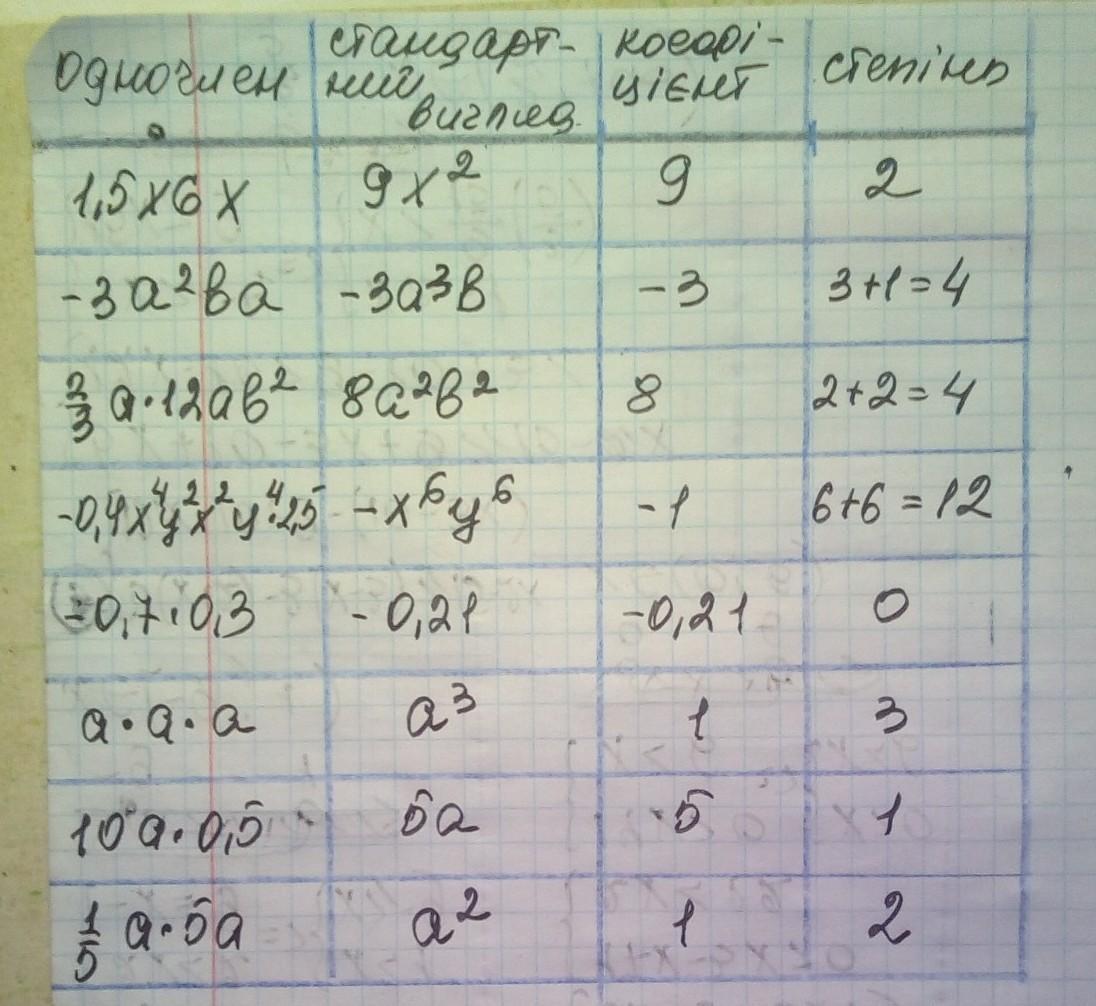 одночлен стандарт- коефі- степінь
ний цієнт
вигляд
1,5x6x 9x² 9 2
-3a²ba -3a³b -3 3+1=4
2/3 a·12ab² 8a²b² 8 2+2=4
-0,4x⁴y²x²y⁴·2,5 -x⁶y⁶ -1 6+6=12
-0,7·0,3 -0,21 -0,21 0
a·a·a a³ 1 3
10a·0,5 5a 5 1
1/5 a·5a a² 1 2